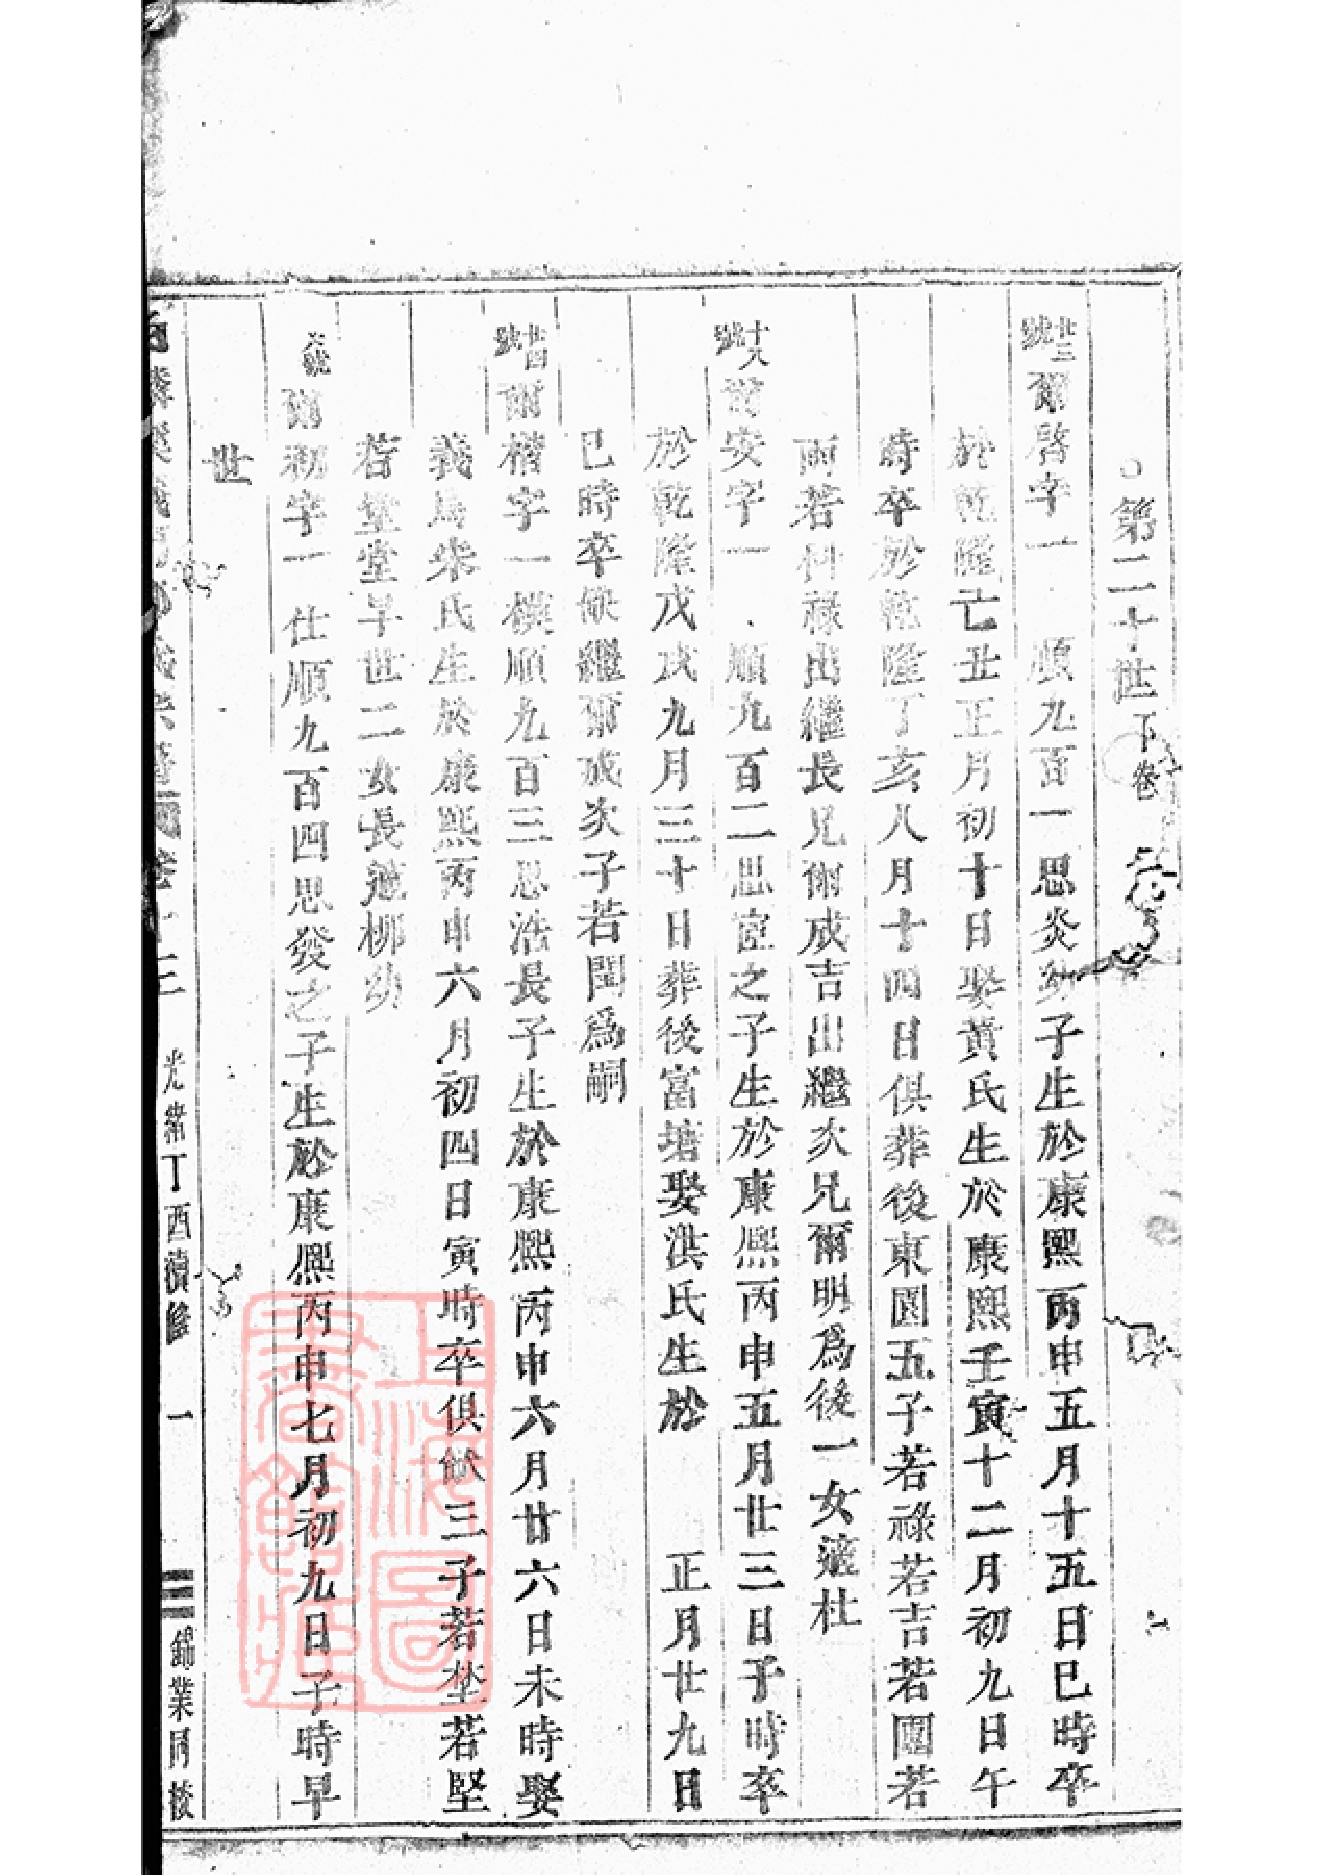 ○第二十世下卷
廿三號爾啓字一順九百一思炎幼子生於康熙丙申五月十五日巳時卒
於乾隆亡丑正月初十日娶黃氏生於康熙壬寅十二月初九日午
時卒於乾隆丁亥八月十四日俱葬後東園五子若祿若吉若園若
雨若 祿出繼長兄爾成吉出繼次兄爾明為後一女適杜
十八號爾安字一順九百二思 之子生於康熙丙申五月廿三日子時卒
於乾隆戊戌九月三十日葬後富塘娶洪氏生於 正月廿九日
巳時卒缺繼爾成次子若閏爲嗣
廿四號爾楷字一樸順九百三思浩長子生於康熙丙申六月廿六日未時娶
義烏朱氏生於康熙丙申六月初四日寅時卒俱缺三子若坐若堅
若堂堂早世二女長適柳幼
號爾 字一仕順九百四思發之子生於康熙丙申七月初九日子時早
世
光緒丁酉續修 一 錦業同梓
上海圖書館藏